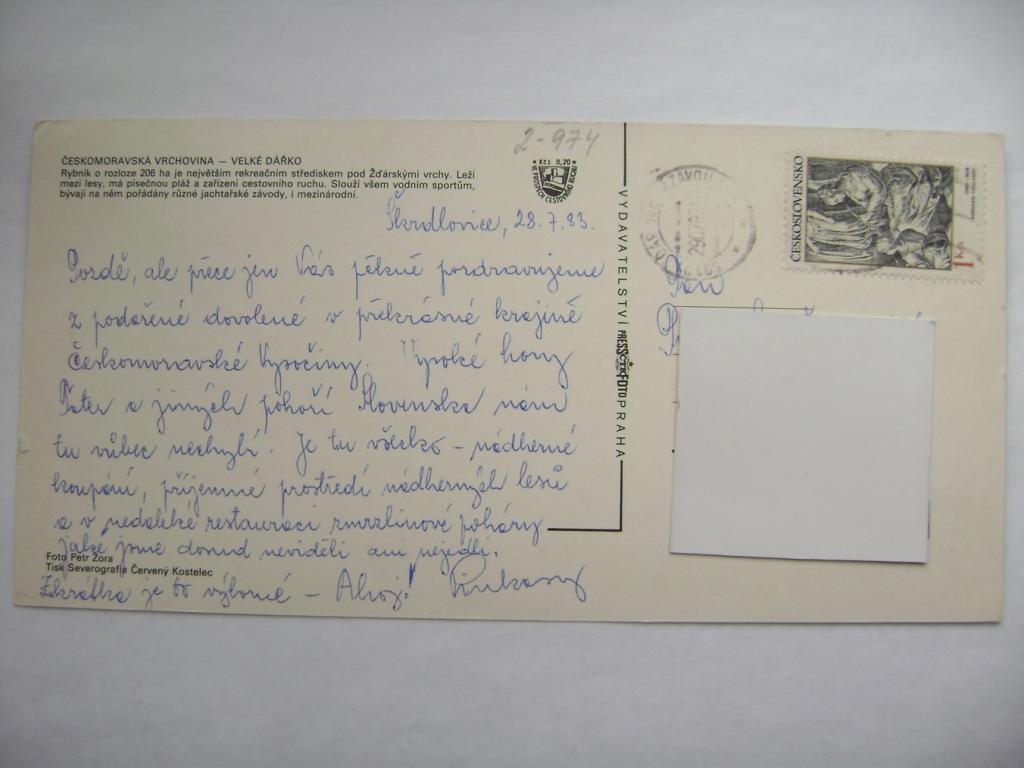 2-974
ČESKOMORAVSKÁ VRCHOVINA — VELKÉ DÁŘKO
Rybník o rozloze 206 ha je největším rekreačním střediskem pod Žďárskými vrchy. Leží
mezi lesy, má písečnou pláž a zařízení cestovního ruchu. Slouží všem vodním sportům,
bývají na něm pořádány různé jachtařské závody, i mezinárodní.
Kčs 0,20
VE PROSPĚCH CESTOVNÍHO RUCHU
Škrdlovice, 28.7.83.
Pozdě, ale přece jen Vás pěkně pozdravujeme
z podařené dovolené v překrásné krajině
Českomoravské Vysočiny. Vysoké hory
Tater a jiných pohoří Slovenska nám
tu vůbec nechybí. Je tu všecko – nádherné
koupání, příjemné prostředí nádherných lesů
a v nedaleké restauraci zmrzlinové poháry
jaké jsme dosud neviděli ani nejedli.
Zkrátka je to výborné – Ahoj!
Foto Petr Zora
Tisk Severografia Červený Kostelec
VYDAVATELSTVÍ PRESSFOTO PRAHA
ČESKOSLOVENSKO
1 Kčs
Pan